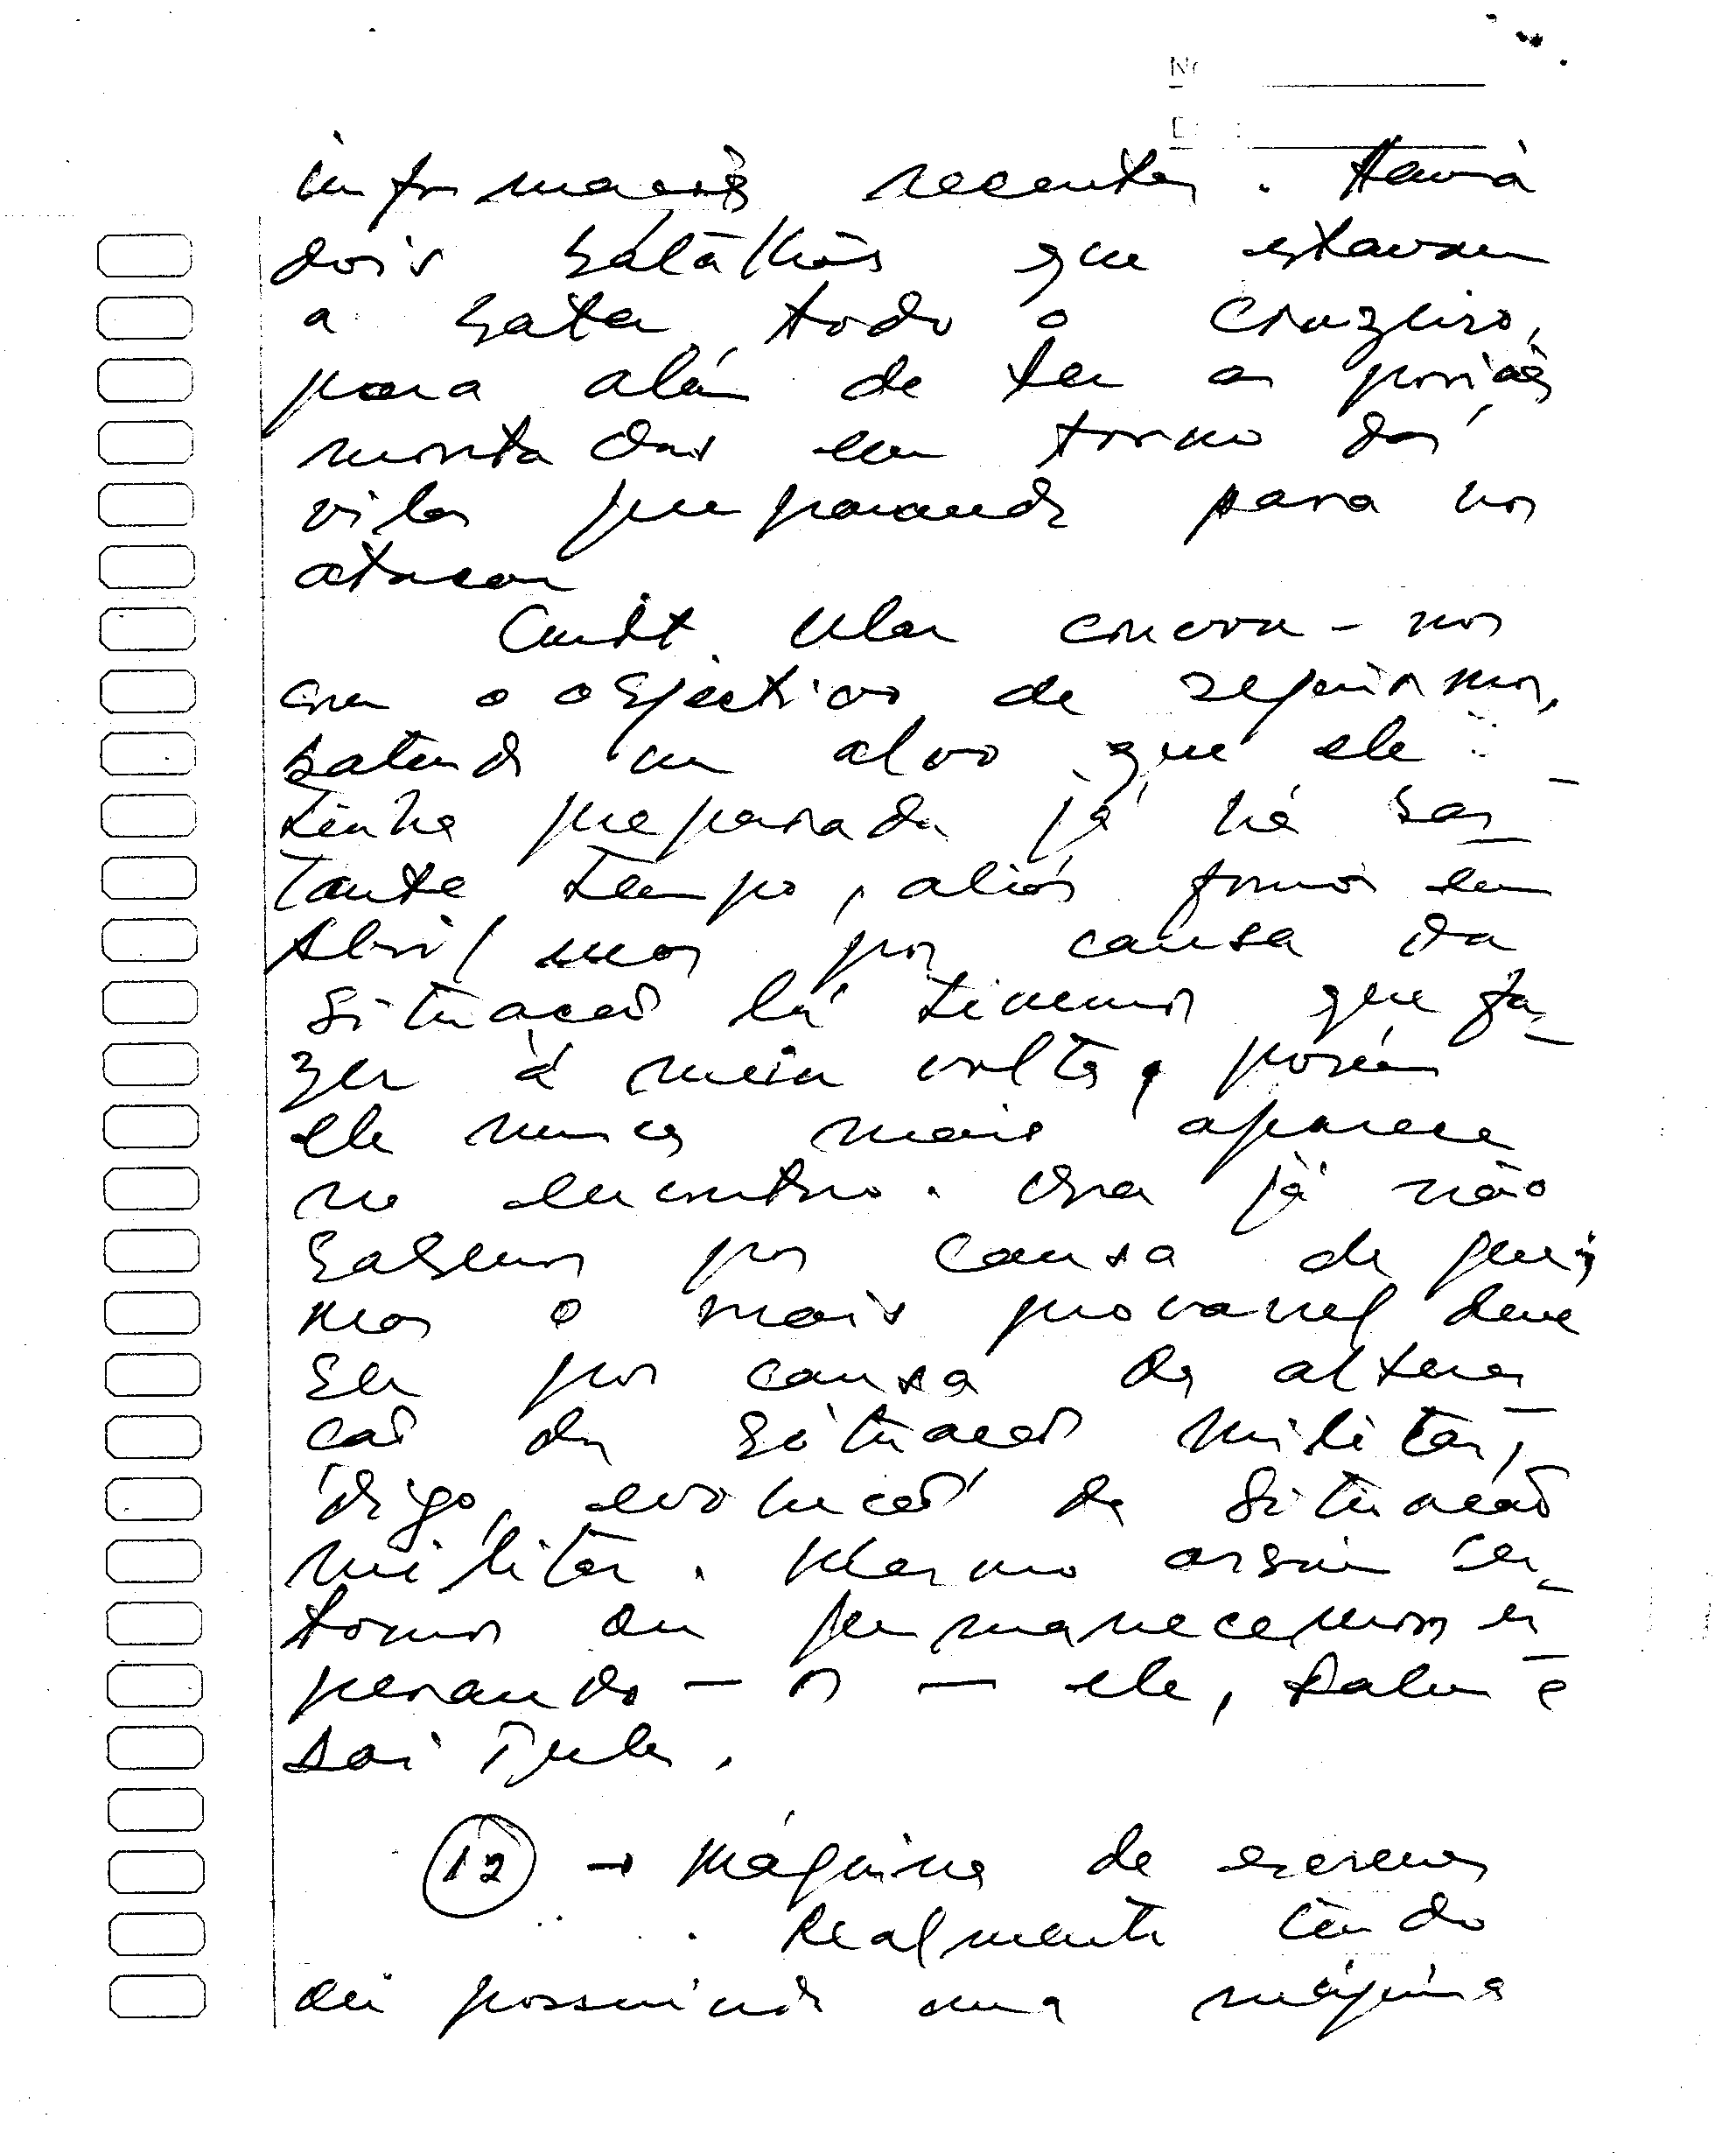 No
informações recentes. Havia
dois batalhões que estavam
a bater todo o cruzeiro,
para além de ter as posições
montadas em torno das
vilas preparando para nos
atacar
Cmdt. Mau
com o objectivo de seguirmos,
batendo um alvo que ele
tinha preparado já há bas-
tante tempo, aliás fomos em
Abril mas por causa da
situação lá tivemos que fa-
zer a meia volta, porém
ele nunca mais aparece
no encontro. Ora já não
sabemos por causa de quê;
mas o mais provavel deve
ser por causa da altera-
ção da situação militar,
digo, evolução da situação
militar. Mesmo assim es-
tamos ou permanecemos es-
perando - o - ele,
12 → Máquina de escrever
Realmente tendo
ou possuindo uma máquina